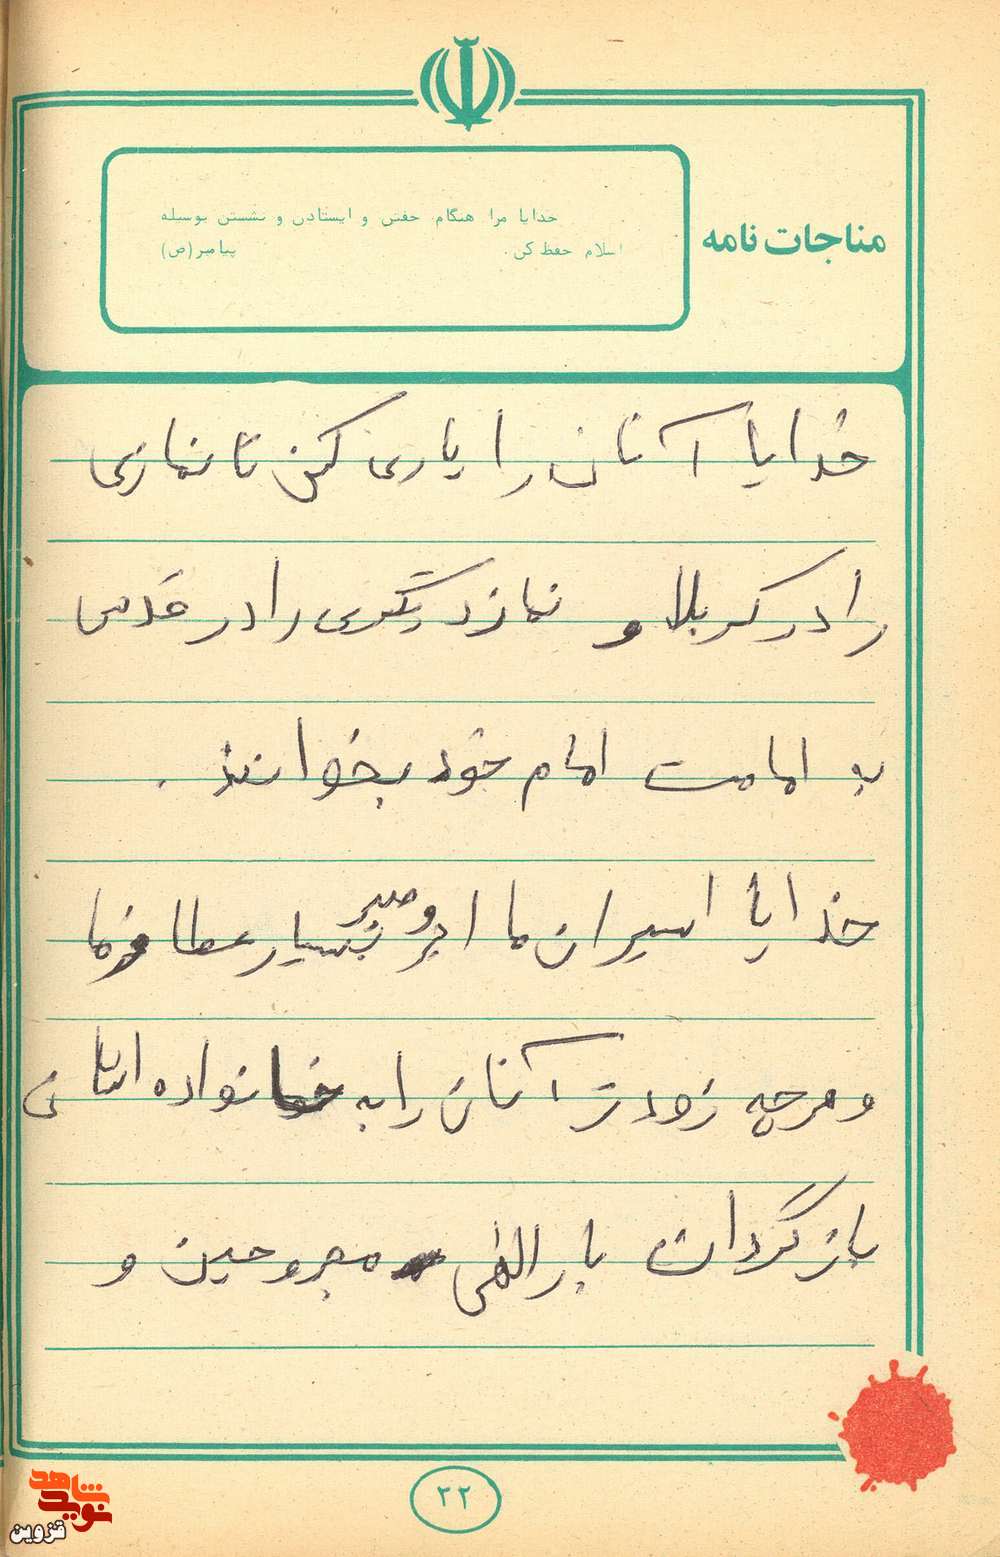 مناجات نامه
خدایا مرا هنگام خفتن و ایستادن و نشستن بوسیله
اسلام حفظ کن. پیامبر(ص)
خدایا آنان را یاری کن تا نمازی
را در کربلا و نماز دیگری را در قدس
به امامت امام خود بخوانند.
خدایا اسیران ما اجر و صبر بسیار عطا فرما
و هرچه زودتر آنان را به خانواده اشان
بازگردان بارالهی مجروحین و
۲۲
نوید شاهد
قزوین